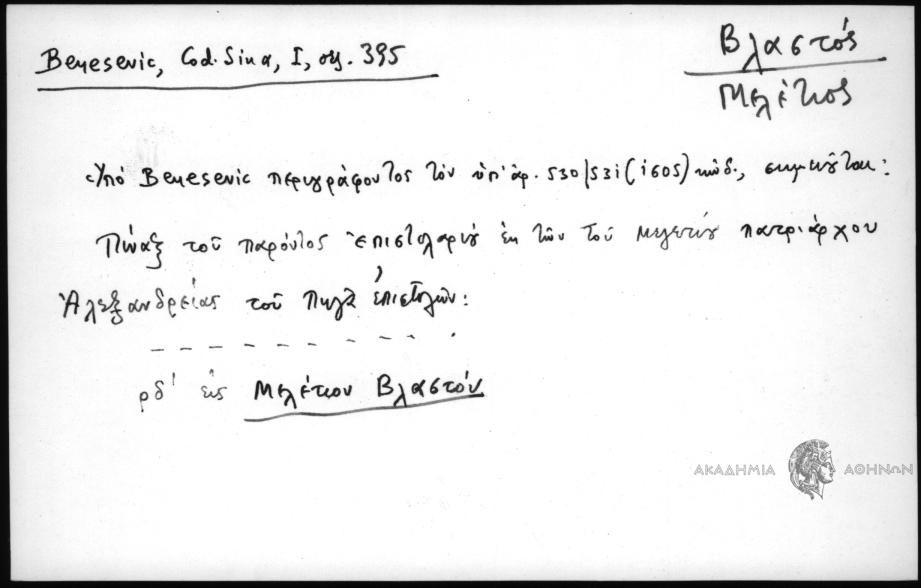 Benesenic, Cod. Sina, I, σς. 395
Βλαστός
Μελέτιος
Ὑπό Benesenic περιγράφοντος τόν ὑπ' ἀρ. 530/531 (1605) κώδ., σημειοῦται:
Πίναξ τοῦ παρόντος ἐπιστολαρίου ἐκ τῶν τοῦ Μελετίου πατριάρχου
Ἀλεξανδρείας τοῦ Πηγᾶ ἐπιστολῶν:
ρδ' εἰς Μελέτιον Βλαστόν
ΑΚΑΔΗΜΙΑ ΑΘΗΝΩΝ